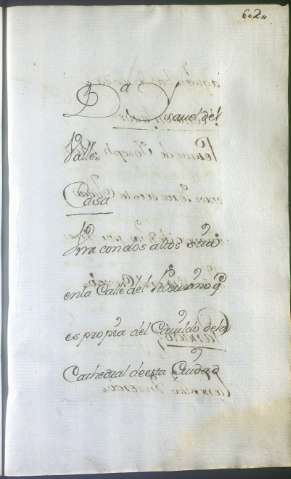 602
Da Ysauel del
Valle
Casa
Una con dos altos
en la Calle del
es propria del Cavildo de la
Cathedral de esta Ciudad